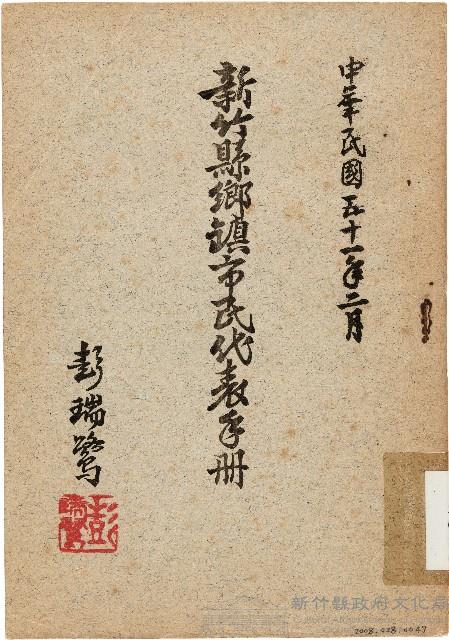 中華民國五十一年二月
新竹縣鄉鎮市民代表手冊
彭瑞鷺
彭瑞鷺
新竹縣政府文化局
2008.028.0047